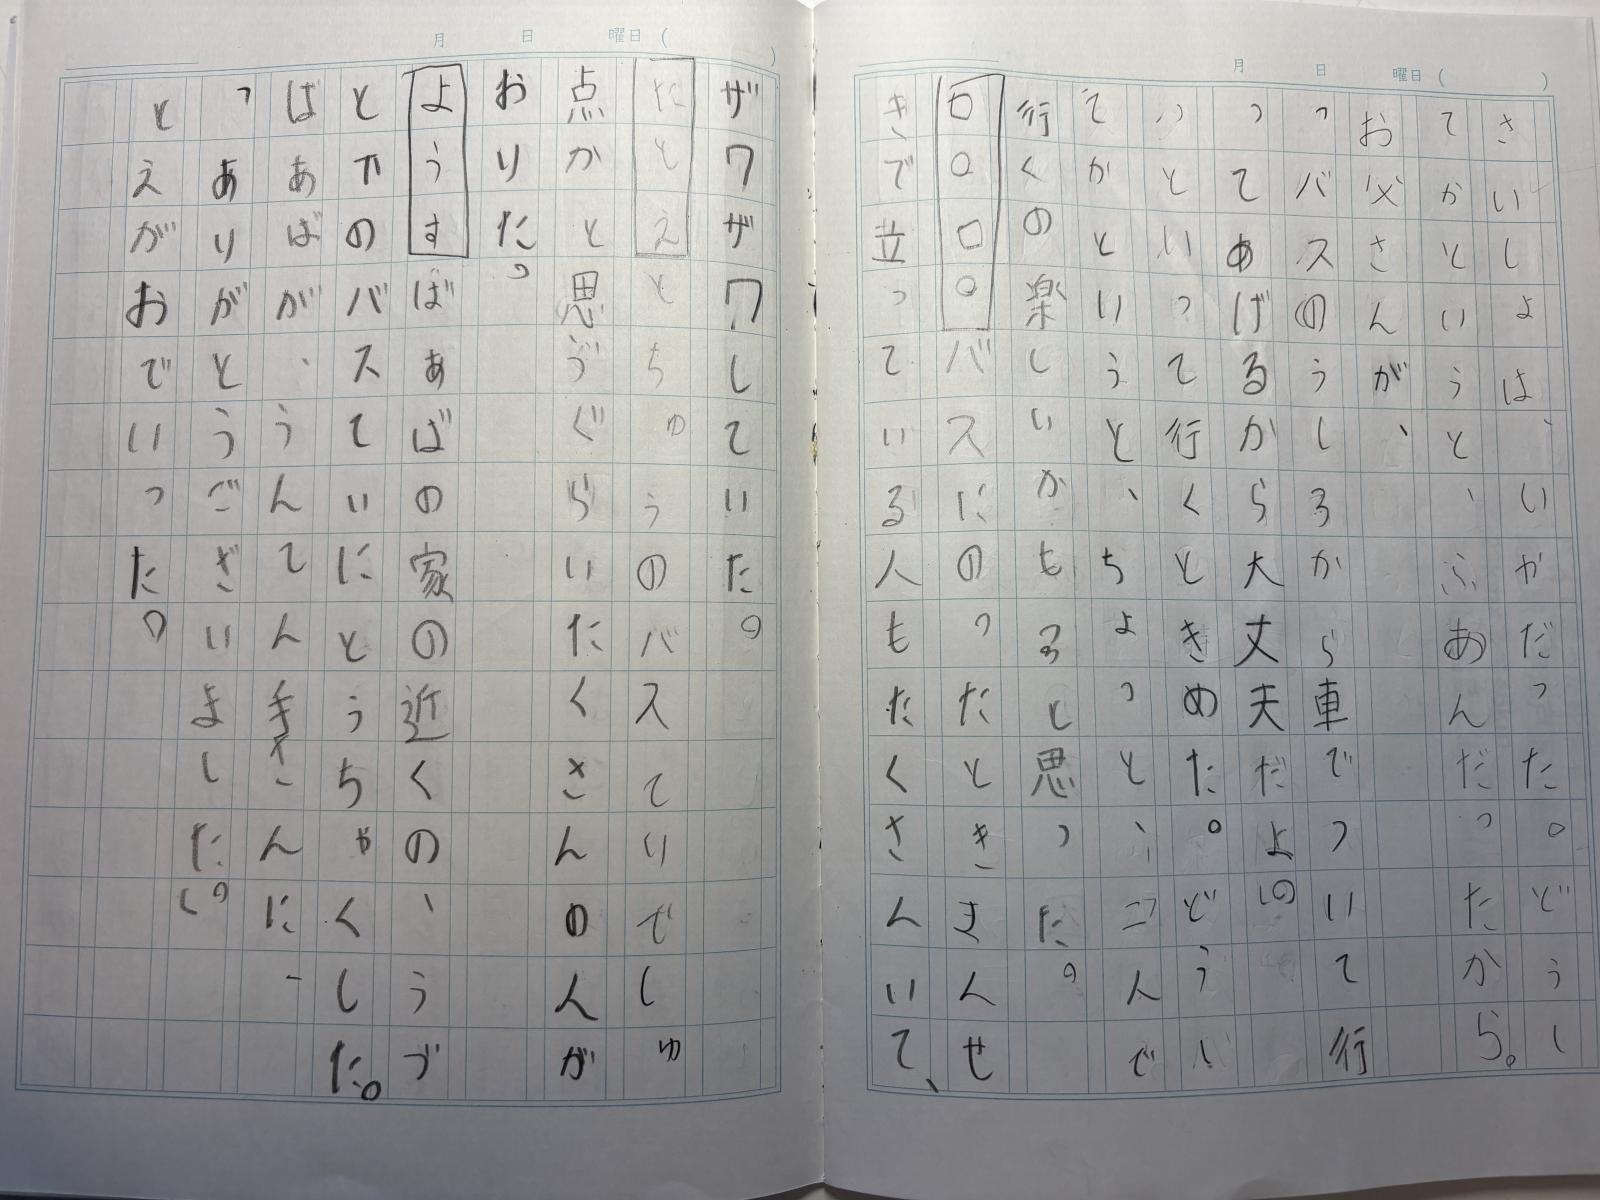 月　日　曜日（　　）
さいしよは、いやだった。どうし
てかというと、ふあんだったから。
お父さんが、
っバスのうしろから車でついて行
ってあげるから大丈夫だよ。」
といって行くときめた。どうし
てかというと、ちよっと、二人で
行くの楽しいかもると思った。
ロ〇ロ〇バスにのったときまんせ
きで立っている人もたくさんいて、
月　日　曜日（　　）
ザワザワしていた。
たとえとちゅうのバスていでしゅ
点かと思うぐらいたくさんの人が
おりた。
ようすばぁばの家の近くの、うづ
と下のバスていにとうちゃくした。
ばあばが、うんてん手さんに、
っありがとうございました。」
とえがおでいった。